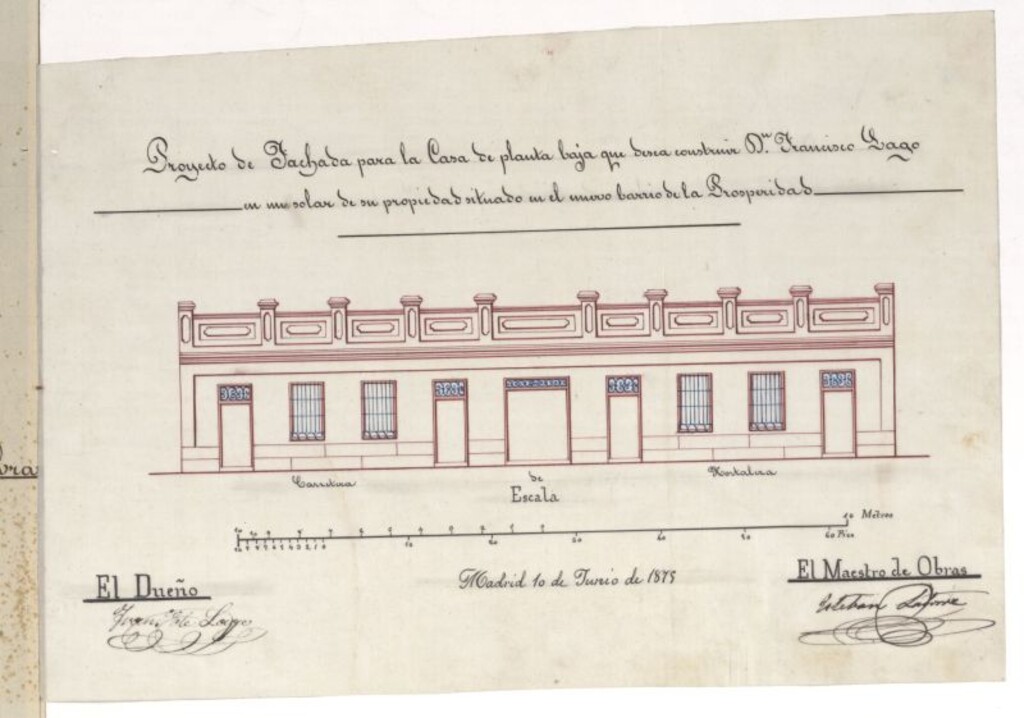 Proyecto de Fachada para la Casa de planta baja que desea construir Dn. Francisco Lago
en un solar de su propiedad situado en el nuevo barrio de la Prosperidad
Carretera de Hortaleza
Escala
10 Metros
60 Pies
Madrid 10 de Junio de 1875
El Dueño
El Maestro de Obras
Esteban